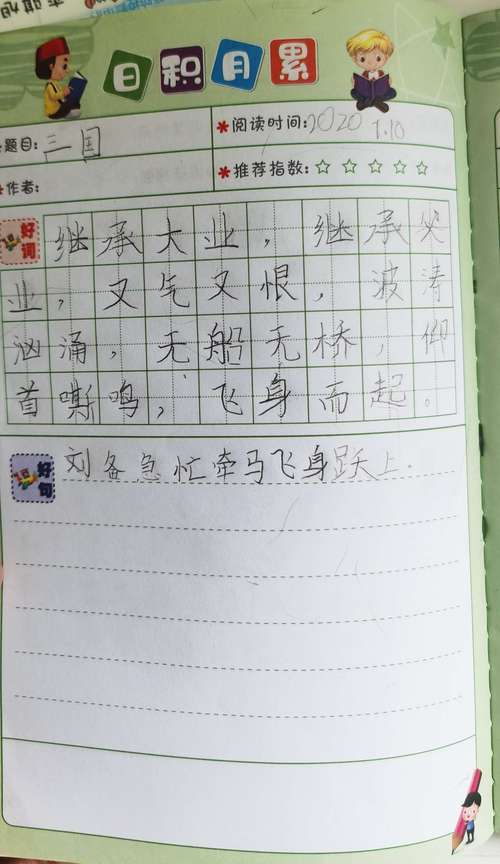 日积月累
题目: 三国
*阅读时间: 2020 1.10
*推荐指数: ☆ ☆ ☆ ☆ ☆
*作者:
好词
继承大业，继承父
业，又气又恨，波涛
汹涌，无船无桥，仰
首嘶鸣，飞身而起。
好句
刘备急忙牵马飞身跃上.